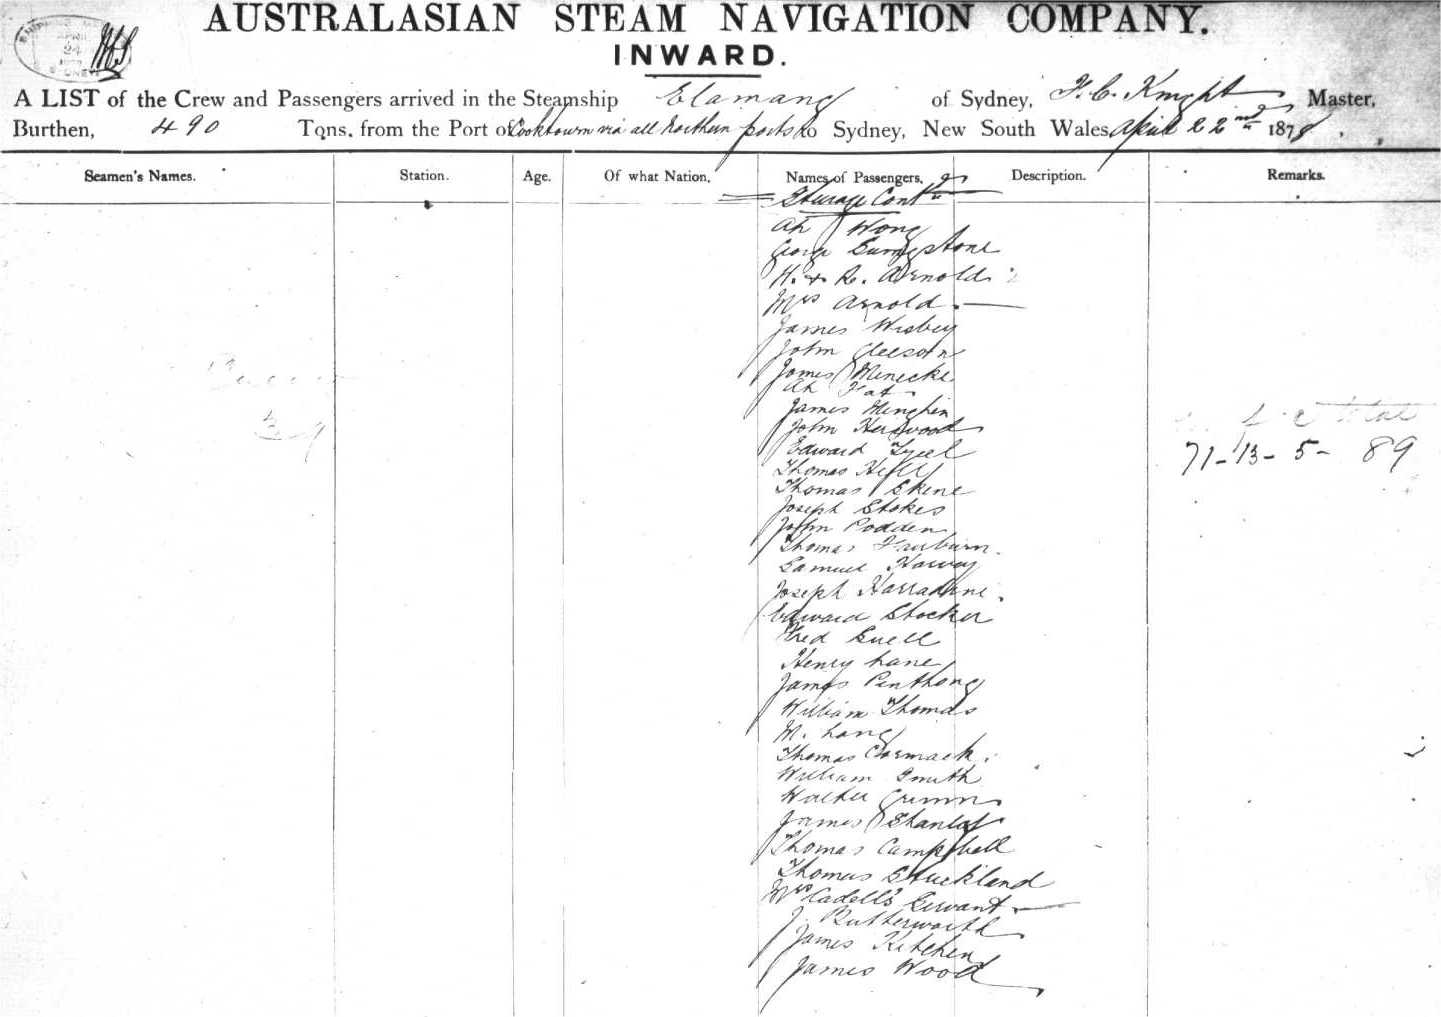 AUSTRALASIAN STEAM NAVIGATION COMPANY.
INWARD.
APRIL
24
SYDNEY
A LIST of the Crew and Passengers arrived in the Steamship Elamang of Sydney, F. C. Knight Master,
Burthen, 490 Tons. from the Port of Cooktown via all Northern ports to Sydney, New South Wales April 22nd 1878
Seamen's Names. Station. Age. Of what Nation. Names of Passengers. Description. Remarks.
Steerage Contd
Ah Wong
George
H. & R. Arnold
Mrs Arnold
James Wisbey
John Gleeson
James Menecke
Ah Fat
James Minghin
John Herwood
Edward
Thomas Hill
Thomas Skene
Joseph Stokes
John Podden
Thomas Fairburn
Samuel Harvey
Joseph
Edward Stocker
Fred Buell
Henry Lane
James Penthong
William Thomas
M. Lang
Thomas Cormack
William Smith
Walter Grimm
James Stanley
Thomas Campbell
Thomas Stuckland
Mrs Cadell's Servant
J. Butterworth
James Kitchen
James Wood
Total
71-13-5- 89